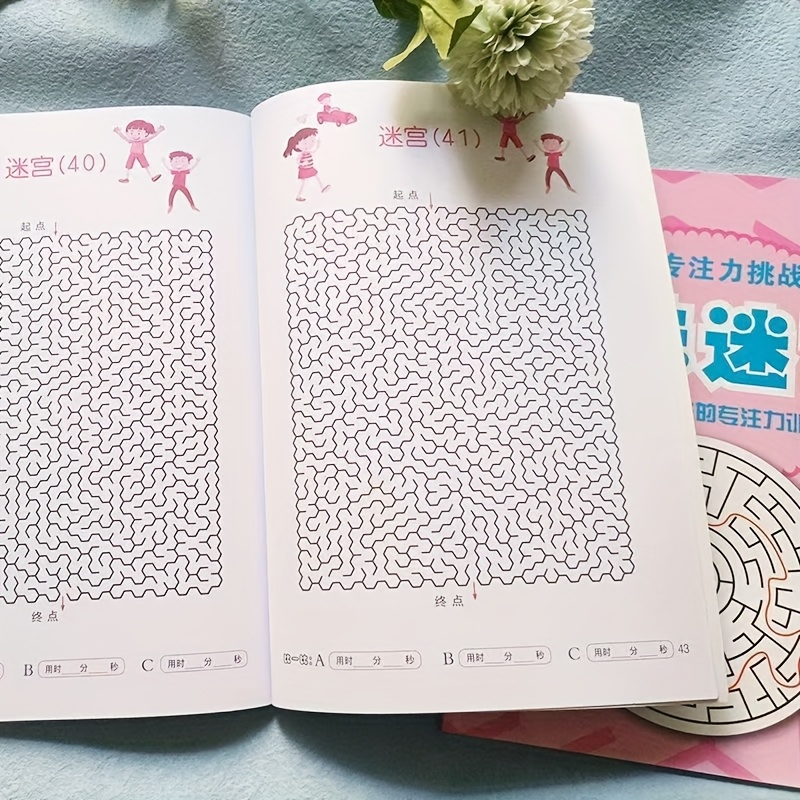 迷宫(40)
起点
终点
B 用时 分 秒 C 用时 分 秒
迷宫(41)
起点
终点
比一比: A 用时 分 秒 B 用时 分 秒 C 用时 分 秒 43
专注力挑战
迷
的专注力训